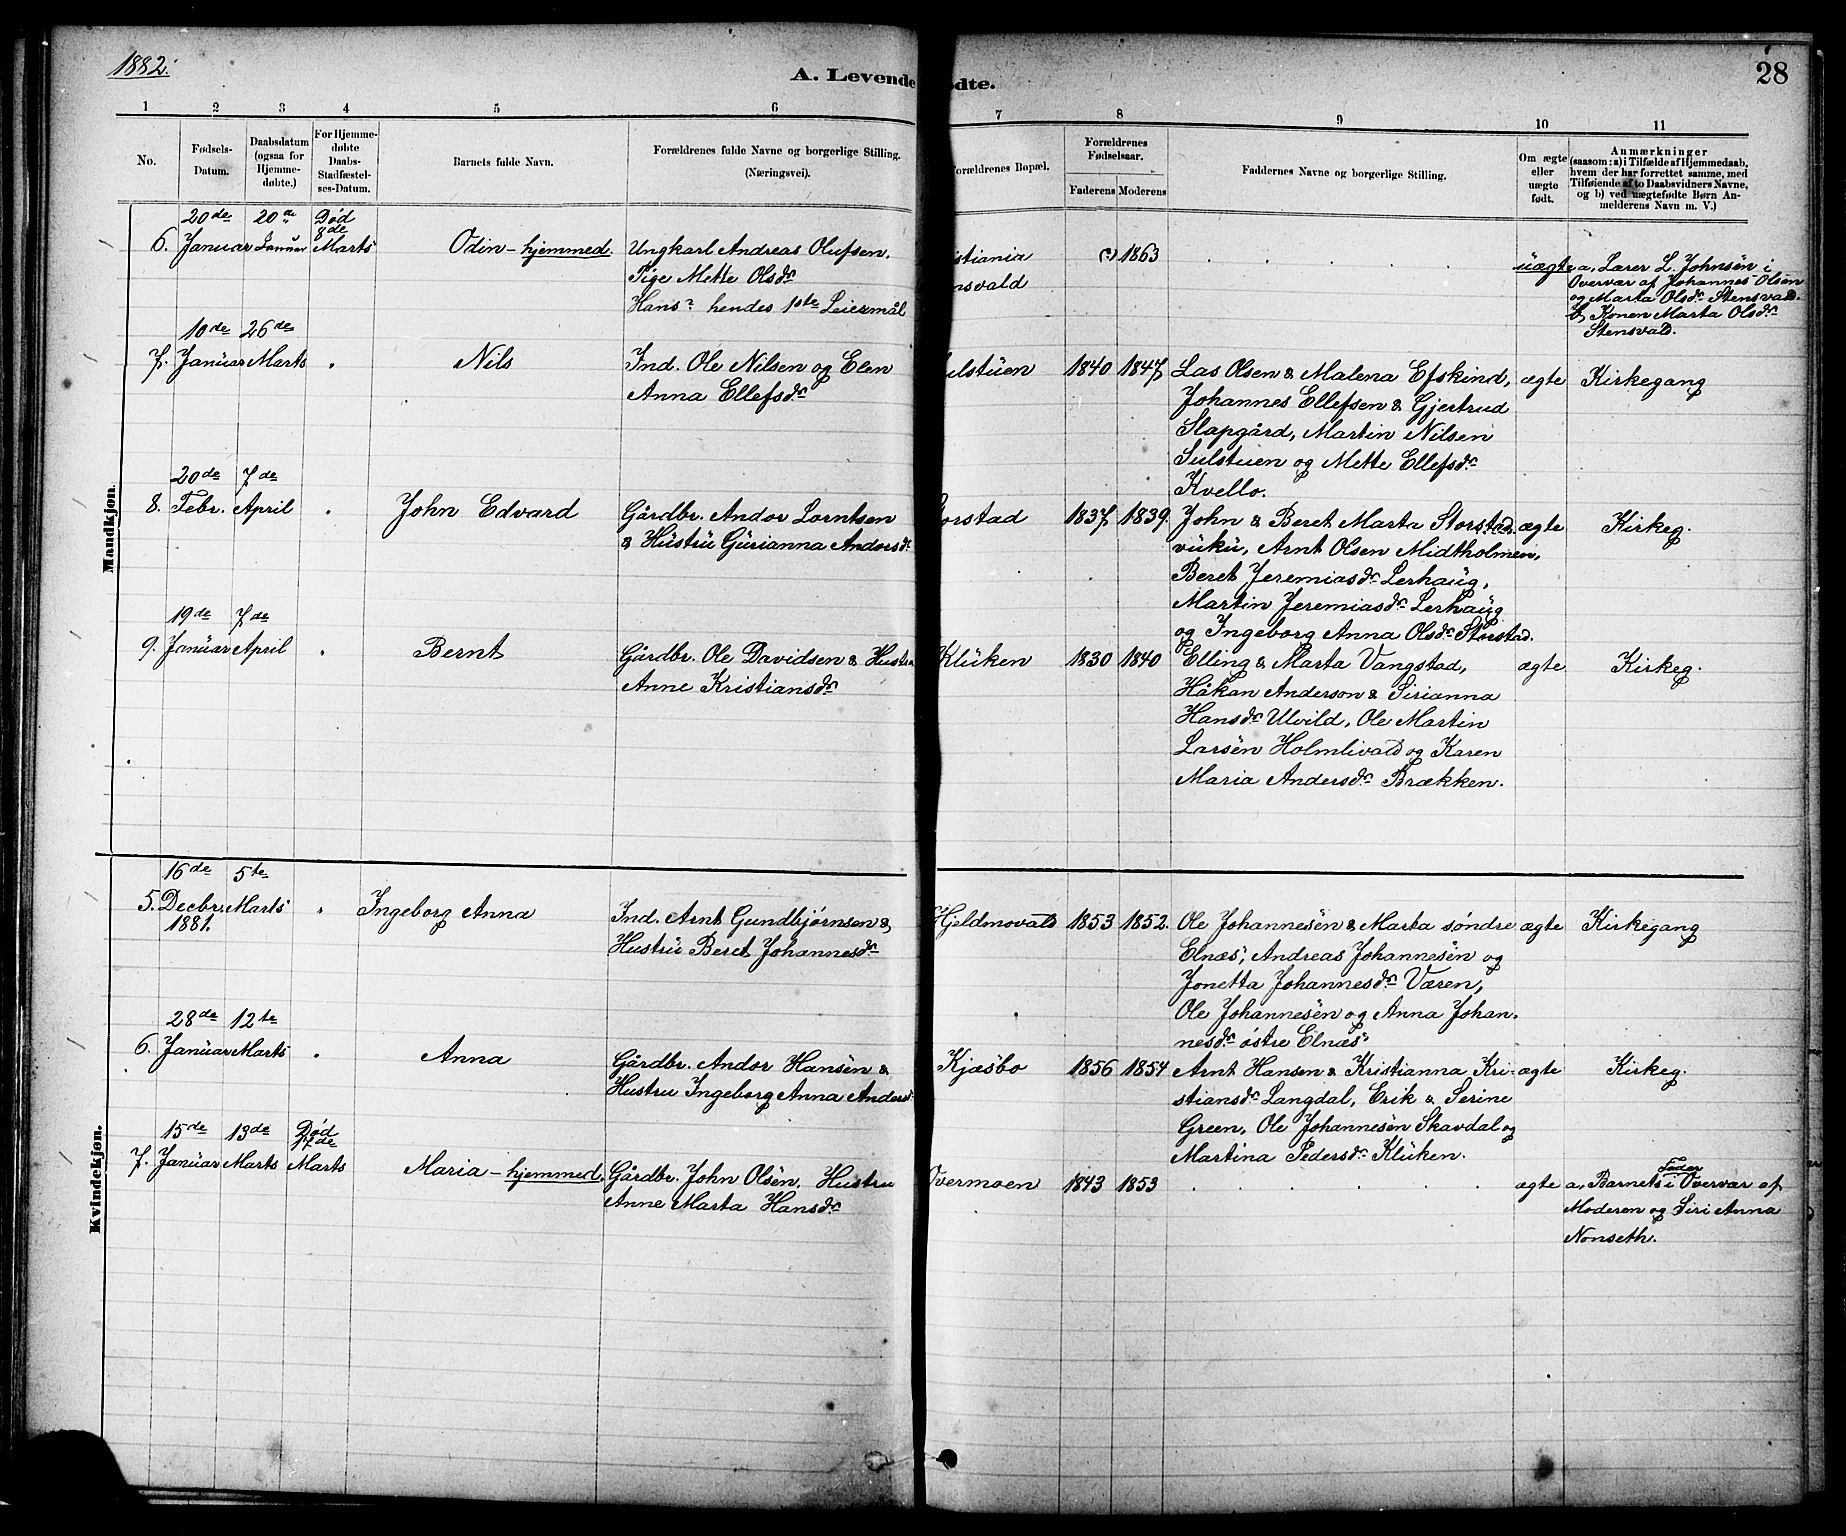 1882.
A. Levende
ødte.
28
1 2 3 4 5 6 7 8 9 10 11
No.
Fødsels-
Datum.
Daabsdatum
(ogsaa for
Hjemme-
døbte.)
For Hjemme-
døbte
Daabs-
Stadfæstel-
ses-Datum.
Barnets fulde Navn.
Forældrenes fulde Navne og borgerlige Stilling.
(Næringsvei).
Forældrenes Bopæl.
Forældrenes
Fødselsaar.
Faderens Moderens
Faddernes Navne og borgerlige Stilling.
Om ægte
eller
uægte
født.
Anmærkninger
(saasom: a) i Tilfælde af Hjemmedaab,
hvem der har forrettet samme, med
Tilføiende af to Daabsvidners Navne,
og b) ved uægtefødte Børn An-
melderens Navn m. V.)
Mandkjøn.
20de 20de Død
8de
6. Januar Januar Marts Odin - hjemmed. Ungkarl Andreas Olufsen, stiania (?) 1863 uægte a, Lærer L. Johnsen i
Pige Mette Olsdr nsvald Overvær af Johannes Olsen
Hans? hendes 1ste Leiermål og Marta Olsdr Stensvald.
b, Konen Marta Olsdr
Stensvald.
10de 26de
7. Januar Marts " Nils Ind. Ole Nilsen og Elen ulstuen 1840 1847 Las Olsen & Malena Efskind, ægte Kirkegang
Anna Ellefsdr Johannes Ellefsen & Gjertrud
Slapgård, Martin Nilsen
Sulstuen og Mette Ellefsdr
Kvello.
20de 7de
8. Febr. April " John Edvard Gårdbr. Andor Lorntsen orstad 1837 1839. John & Beret Marta Storstad ægte Kirkeg.
& Hustru Gurianna Andorsdr vuku, Arnt Olsen Midtholmen,
Beret Jeremiasdr Lerhaug,
Martin Jeremiasdr Lerhaug
og Ingeborg Anna Olsdr Storstad.
19de 7de
9. Januar April " Bernt Gårdbr. Ole Davidsen & Hustr Klüken 1830 1840 Elling & Marta Vangstad, ægte Kirkeg.
Anne Kristiansdr Håkan Anderson & Sirianna
Hansdr Ulvild, Ole Martin
Larsen Holmlivald og Karen
Maria Andersdr Brækken.
Kvindekjøn.
16de 5te
5. Decbr. Marts " Ingeborg Anna Ind. Arnt Gundbjørnsen & Hjeldmovald 1853 1852. Ole Johannesen & Marta søndre ægte Kirkegang
1881. Hustru Beret Johannesdr Elnæs, Andreas Johannesen og
Jonetta Johannesdr Væren,
Ole Johannesen og Anna Johan-
nesdr østre Elnæs
28de 12te
6. Januar Marts " Anna Gårdbr. Andor Hansen & Kjæsbo 1856 1854 Arnt Hansen & Kristianna Kri- ægte Kirkeg.
Hustru Ingeborg Anna Anders stiansdr Langdal, Erik & Serine
Green, Ole Johannesen Skavdal og
Martina Pedersdr Klüken.
15de 13de Død
17de
7. Januar Marts Marts Maria - hjemmed. Gårdbr. John Olsen, Hustru Overmoen 1843 1853 ægte a, Barnets Fader i Overvær af
Anne Marta Hansdr Moderen og Siri Anna
Nonseth.